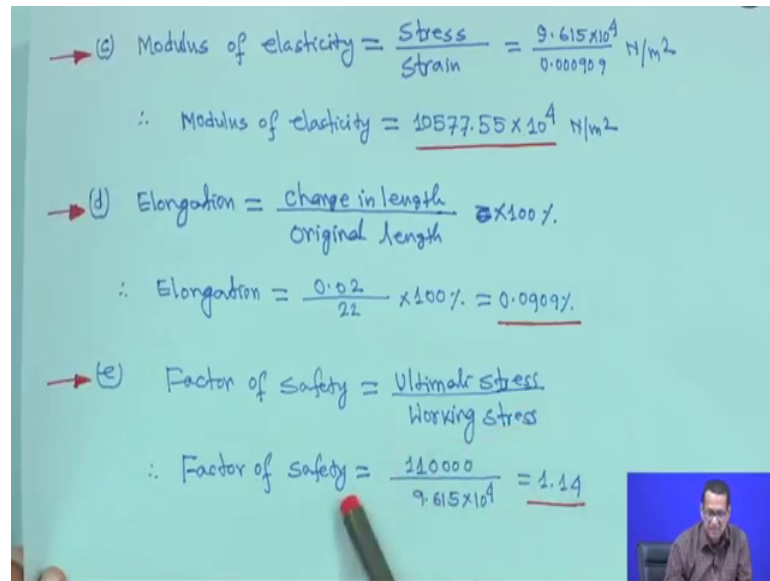 (c) Modulus of elasticity = Stress / Strain = 9.615×10⁴ / 0.000909 N/m²
∴ Modulus of elasticity = 10577.55 × 10⁴ N/m²
(d) Elongation = change in length / original length ×100 %.
∴ Elongation = 0.02 / 22 ×100 % = 0.0909%
(e) Factor of safety = Ultimate stress / Working stress
∴ Factor of safety = 110000 / 9.615×10⁴ = 1.14